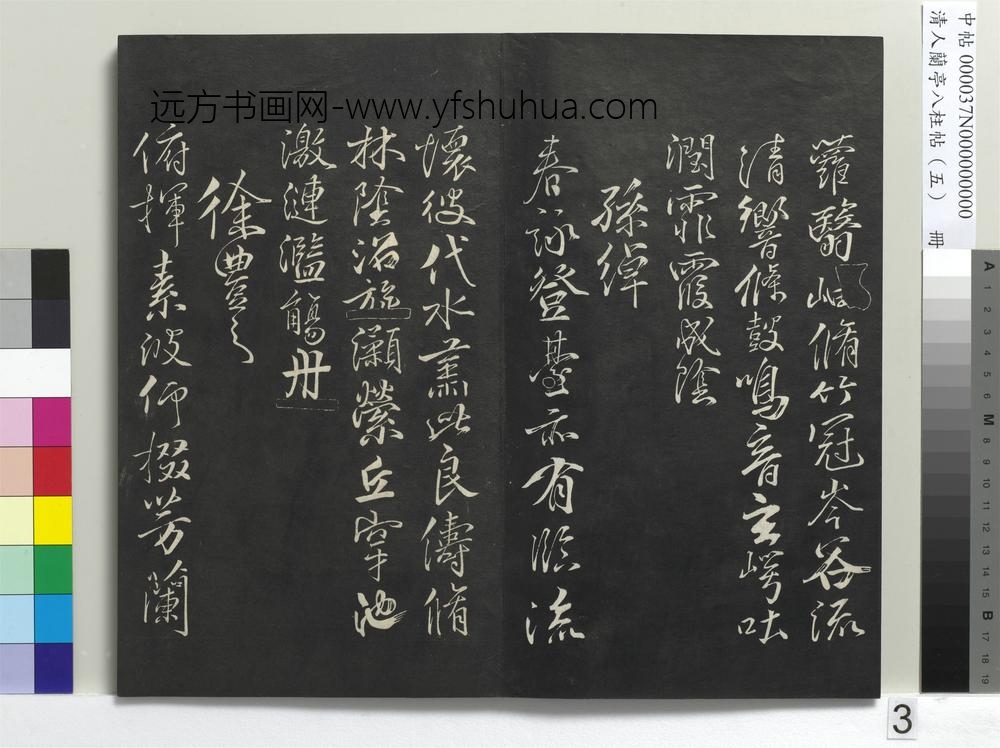 远方书画网-www.yfshuhua.com
中帖 000037N000000000
清人蘭亭八柱帖（五） 冊
蘿翳岫脩竹冠岑谷流
清響條鼓鳴音玄崿吐
潤霏霞成陰
孫綽
春詠登臺亦有臨流
懷彼伐木肅此良儔脩
林陰沼旋瀨縈丘穿池
激漣濫觴卅
徐豐之
俯揮素波仰掇芳蘭
3
A 1 2 3 4 5 6 M 8 9 10 11 12 13 14 15 B 17 18 19